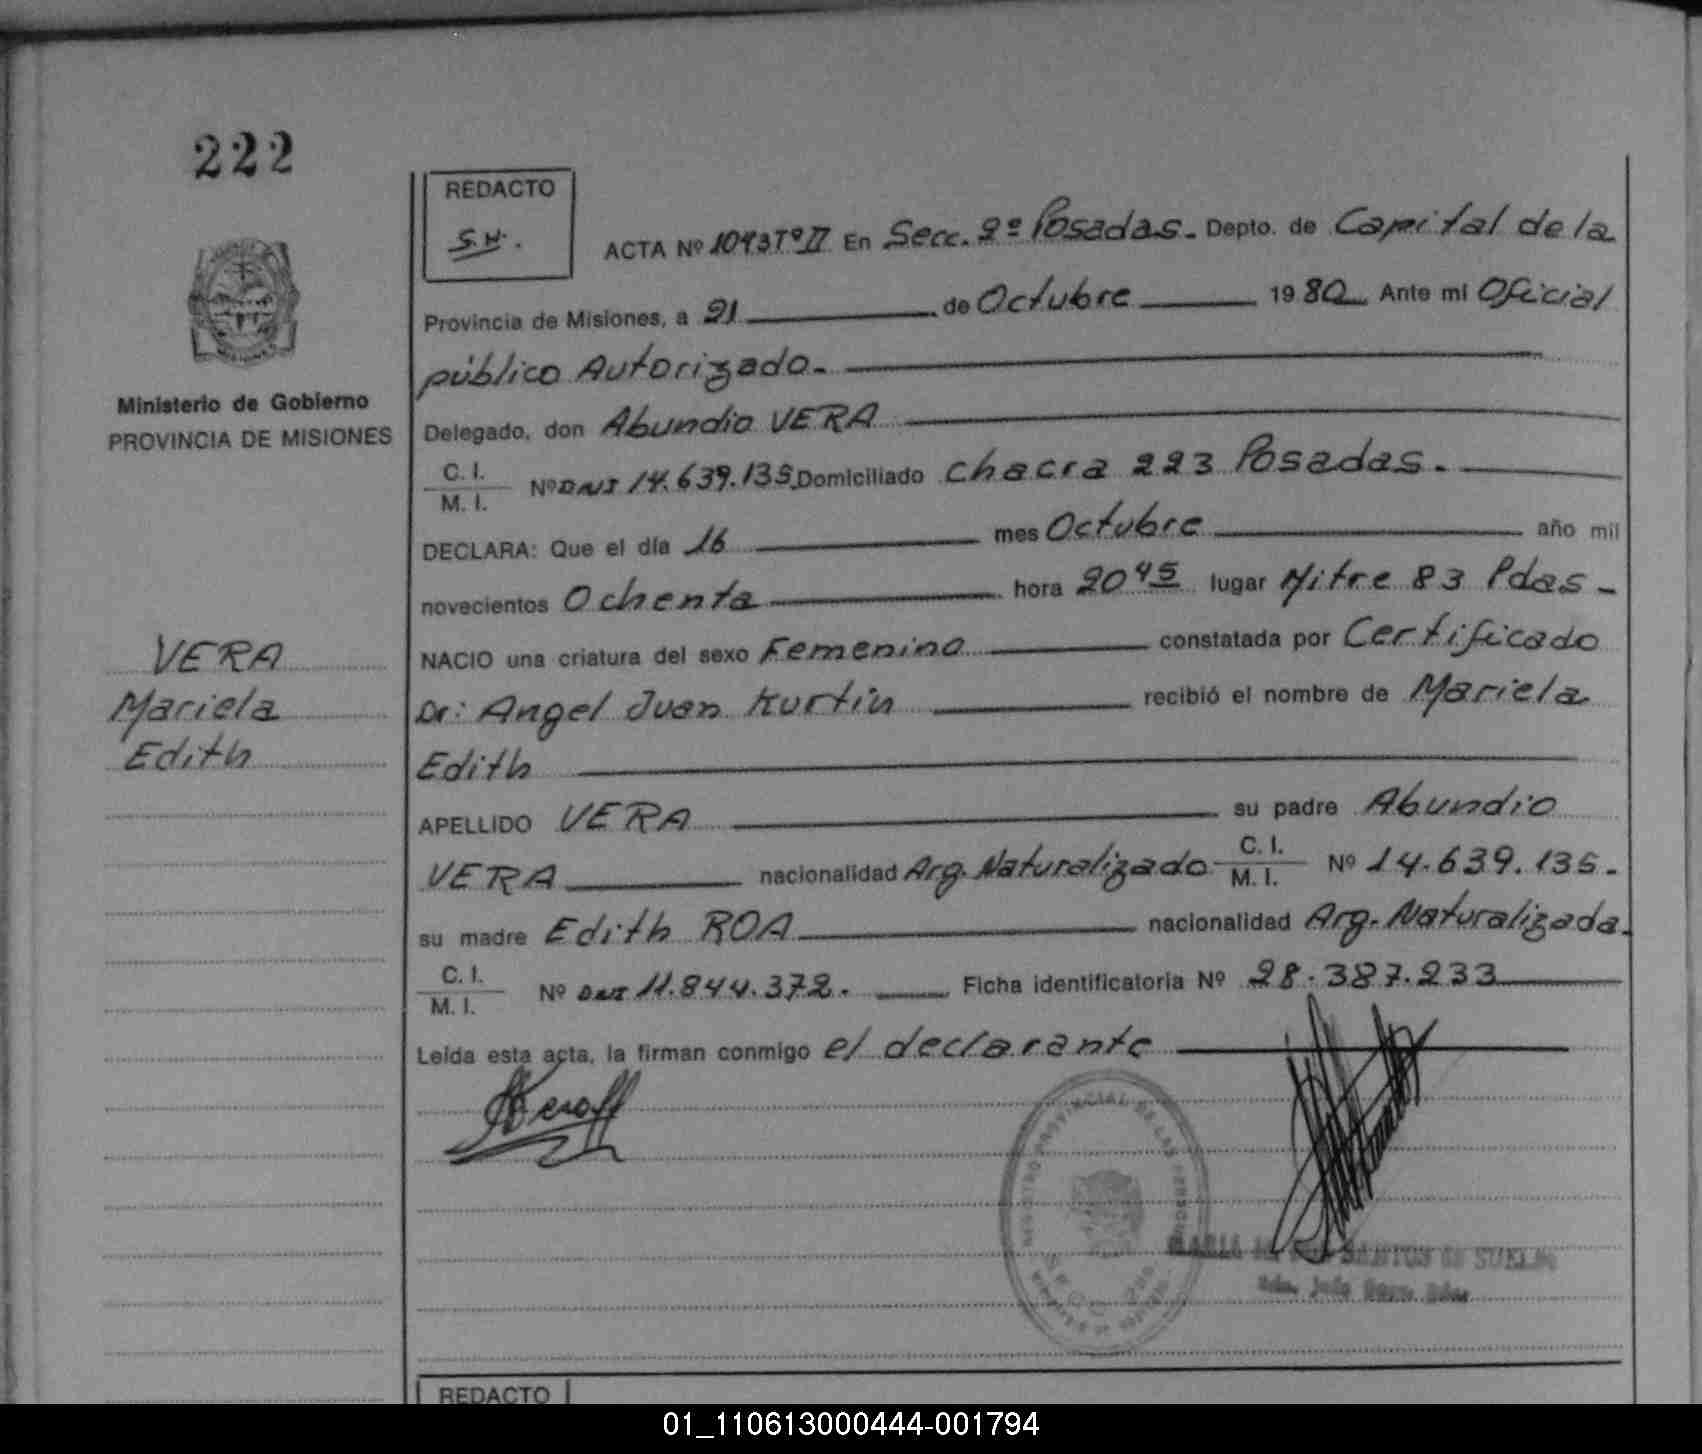 222
REDACTO
S.H.
ACTA Nº 1043 Tº II En Secc. 2º Posadas. Depto. de Capital de la
Provincia de Misiones, a 21 de Octubre 1980 Ante mi Oficial
público Autorizado.
Ministerio de Gobierno
PROVINCIA DE MISIONES
Delegado, don Abundio VERA
C. I.
M. I. Nº DNI 14.639.135 Domiciliado Chacra 223 Posadas.
DECLARA: Que el día 16 mes Octubre año mil
novecientos Ochenta hora 20 45 lugar Mitre 83 Pdas -
VERA
Mariela
Edith
NACIO una criatura del sexo Femenino constatada por Certificado
Dr: Angel Juan Kurtin recibió el nombre de Mariela
Edith
APELLIDO VERA su padre Abundio
VERA nacionalidad Arg. Naturalizado C. I. M. I. Nº 14.639.135.
su madre Edith ROA nacionalidad Arg. Naturalizada.
C. I.
M. I. Nº DNI 11.844.372. Ficha identificatoria Nº 28.387.233
Leída esta acta, la firman conmigo el declarante
REGISTRO PROVINCIAL DE LAS PERSONAS
MARIA SANTOS DE
REDACTO
01_110613000444-001794